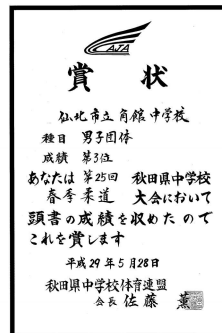 AJA
賞状
仙北市立角館中学校
種目 男子団体
成績 第3位
あなたは第25回 秋田県中学校
春季柔道 大会において
頭書の成績を収めたので
これを賞します
平成29年5月28日
秋田県中学校体育連盟
会長 佐藤 薫